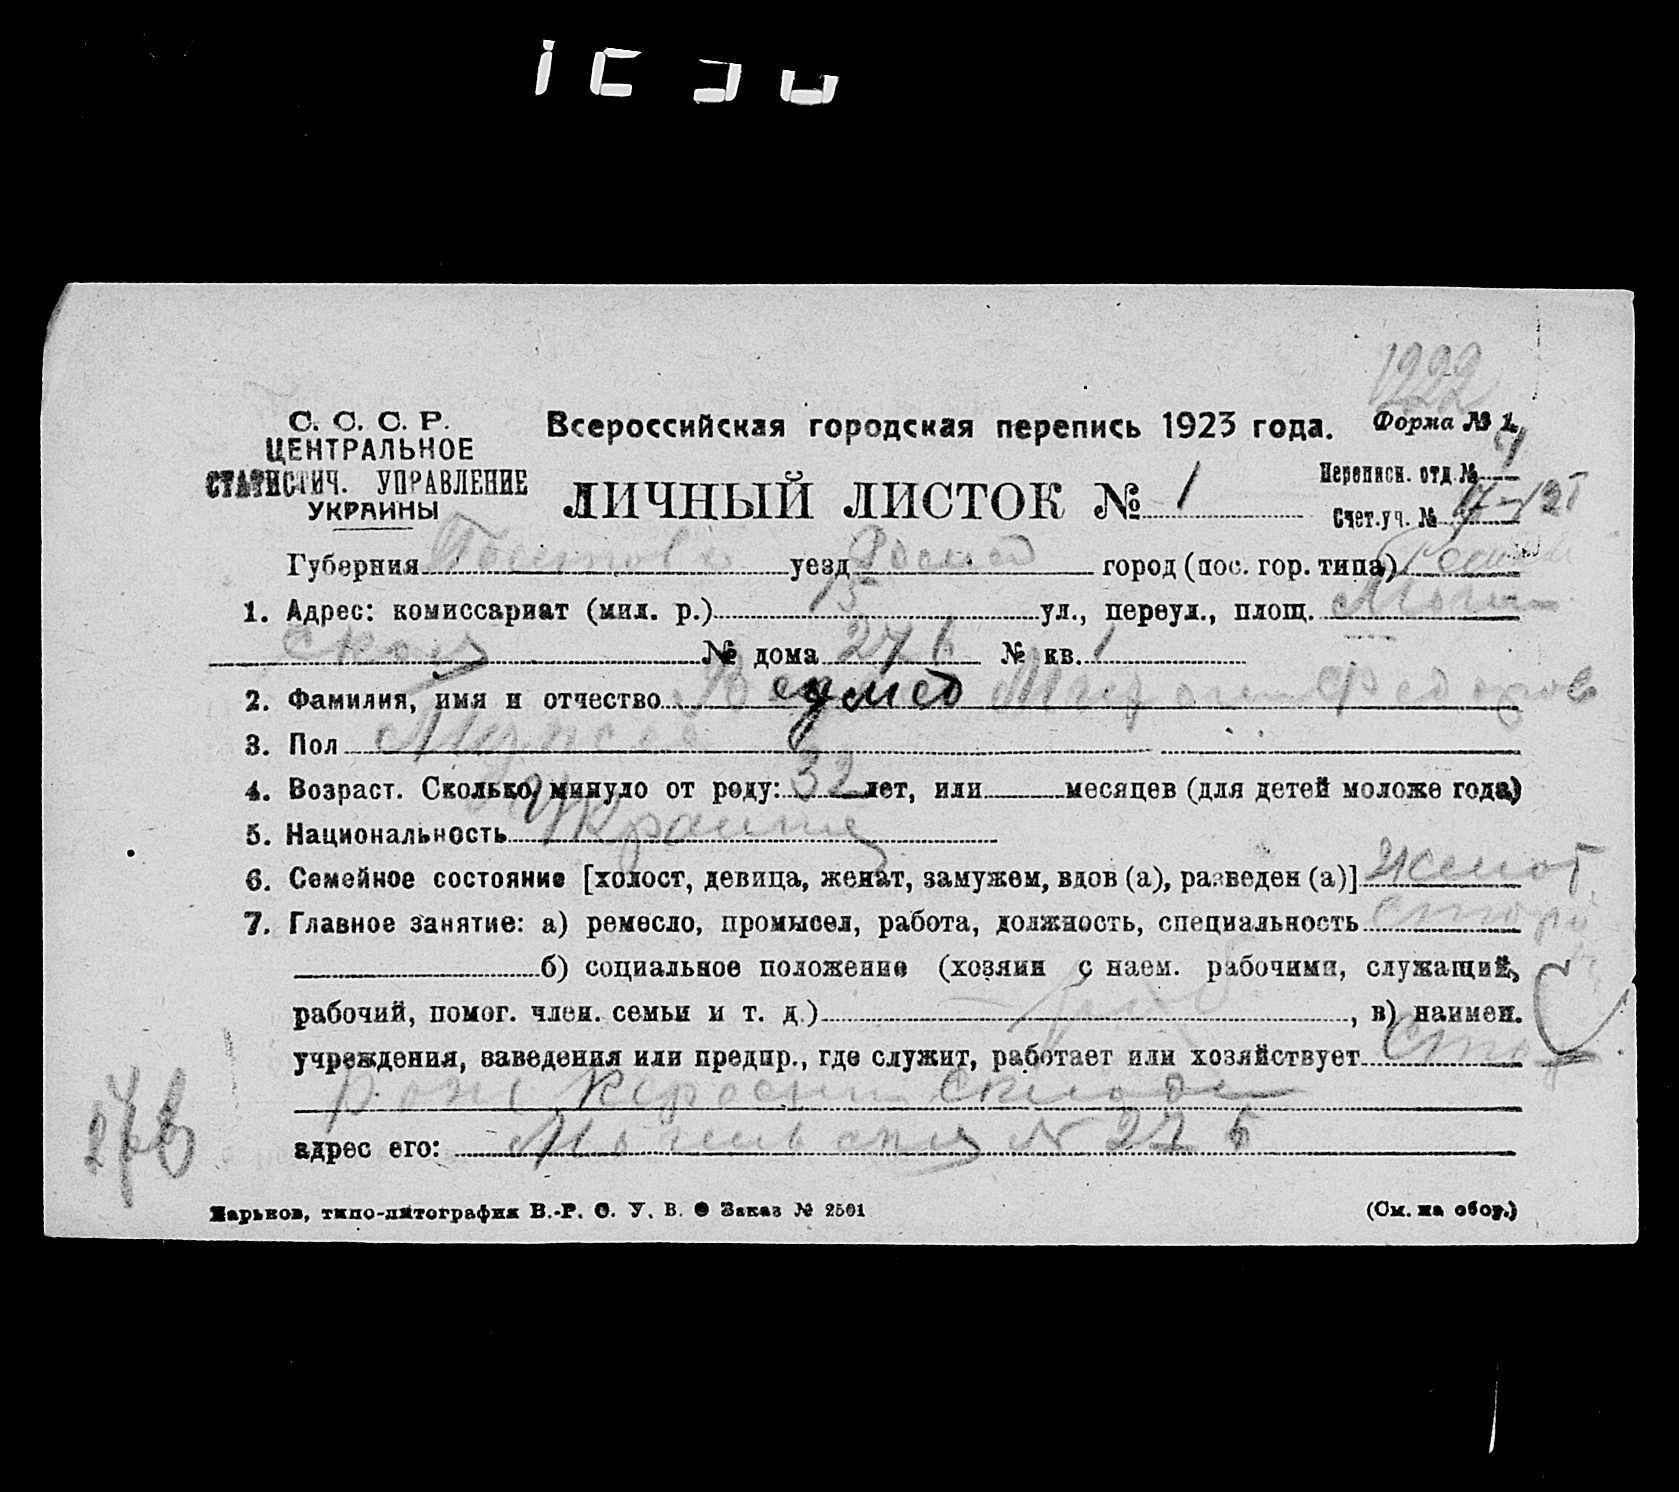 1222
С. С. С. Р.
ЦЕНТРАЛЬНОЕ
СТАТИСТИЧ. УПРАВЛЕНИЕ
УКРАИНЫ
Всероссийская городская перепись 1923 года.
Форма № 1.
ЛИЧНЫЙ ЛИСТОК № 1
Переписн. отд. №
Счет. уч. №
Губерния уезд город (пос. гор. типа)
1. Адрес: комиссариат (мил. р.) 15 ул., переул., площ.
ская № дома 27 б № кв. 1
2. Фамилия, имя и отчество Ведмед Федоров
3. Пол Мужской
4. Возраст. Сколько минуло от роду: 32 лет, или месяцев (для детей моложе года)
5. Национальность Украинец
6. Семейное состояние [холост, девица, женат, замужем, вдов (а), разведен (а)] женат
7. Главное занятие: а) ремесло, промысел, работа, должность, специальность сторож
б) социальное положение (хозяин с наем. рабочими, служащий,
рабочий, помог. член. семьи и т. д.) раб , в) наимен.
учреждения, заведения или предпр., где служит, работает или хозяйствует
керосин склада
адрес его: № 27 б
27б
Харьков, типо-литография В.-Р. О. У. В. Заказ № 2501
(См. на обор.)